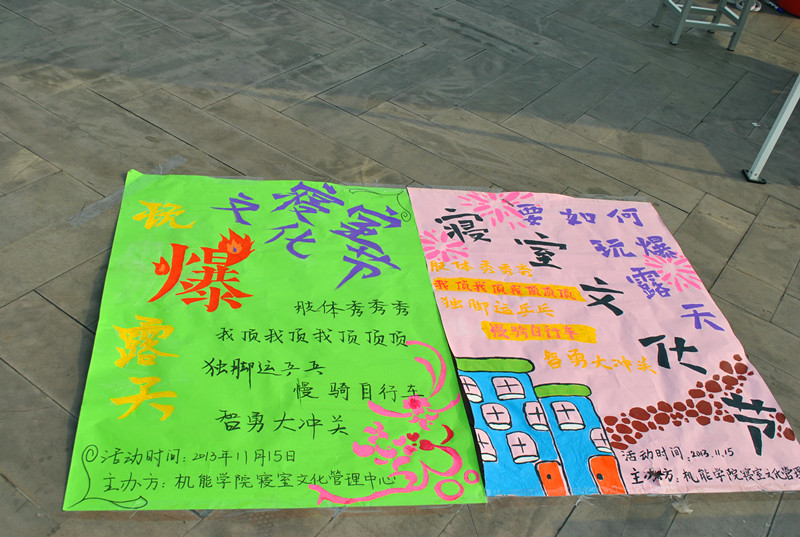 寝室
文化节
玩
爆
露天
肢体秀秀秀
我顶我顶我顶顶顶
独脚运乒乓
慢骑自行车
智勇大冲关
活动时间:2013年11月15日
主办方:机能学院寝室文化管理中心
寝室文化节
要如何
玩爆
露天
肢体秀秀秀
我顶我顶我顶顶顶
独脚运乒乓
慢骑自行车
智勇大冲关
活动时间:2013.11.15
主办方:机能学院寝室文化管理